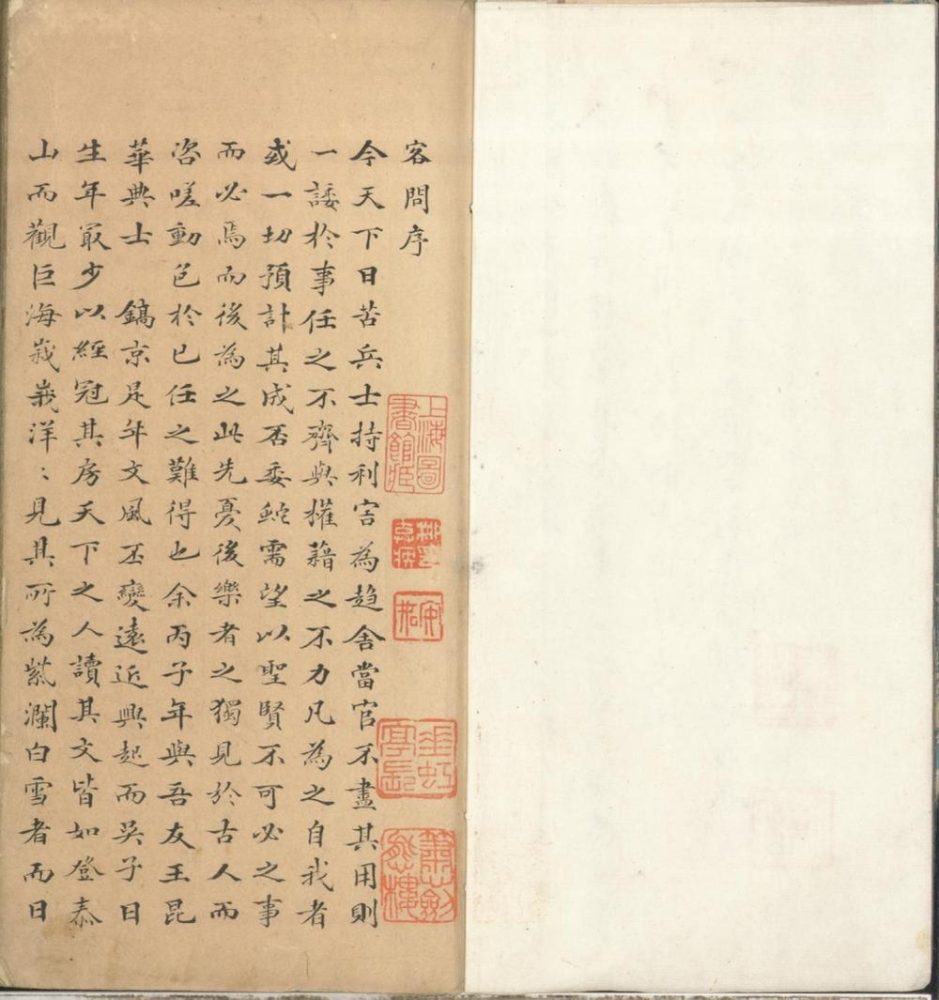 客問序
今天下日苦兵士持利害為趋舍當官不盡其用則
一諉於事任之不齊與權藉之不力凡為之自我者
或一切預計其成否委蛇需望以聖賢不可必之事
而必焉而後為之此先憂後樂者之獨見於古人而
咨嗟動色於已任之難得也余丙子年與吾友王昆
華典士 鎬京是年文風丕變遠近興起而吳子日
生年最少以經冠其房天下之人讀其文皆如登泰
山而觀巨海峩峩洋〻見其所為紫瀾白雪者而日
上海圖書館藏